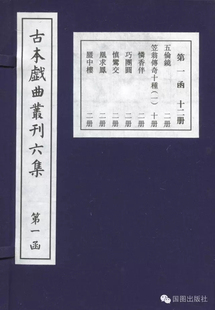 第一函 十二册
五倫鏡 二册
笠翁傳奇十種(一) 十册
憐香伴 二册
巧團圓 二册
慎鸞交 二册
凰求鳳 二册
蜃中樓 二册
古本戲曲叢刊六集 第一函
国图出版社